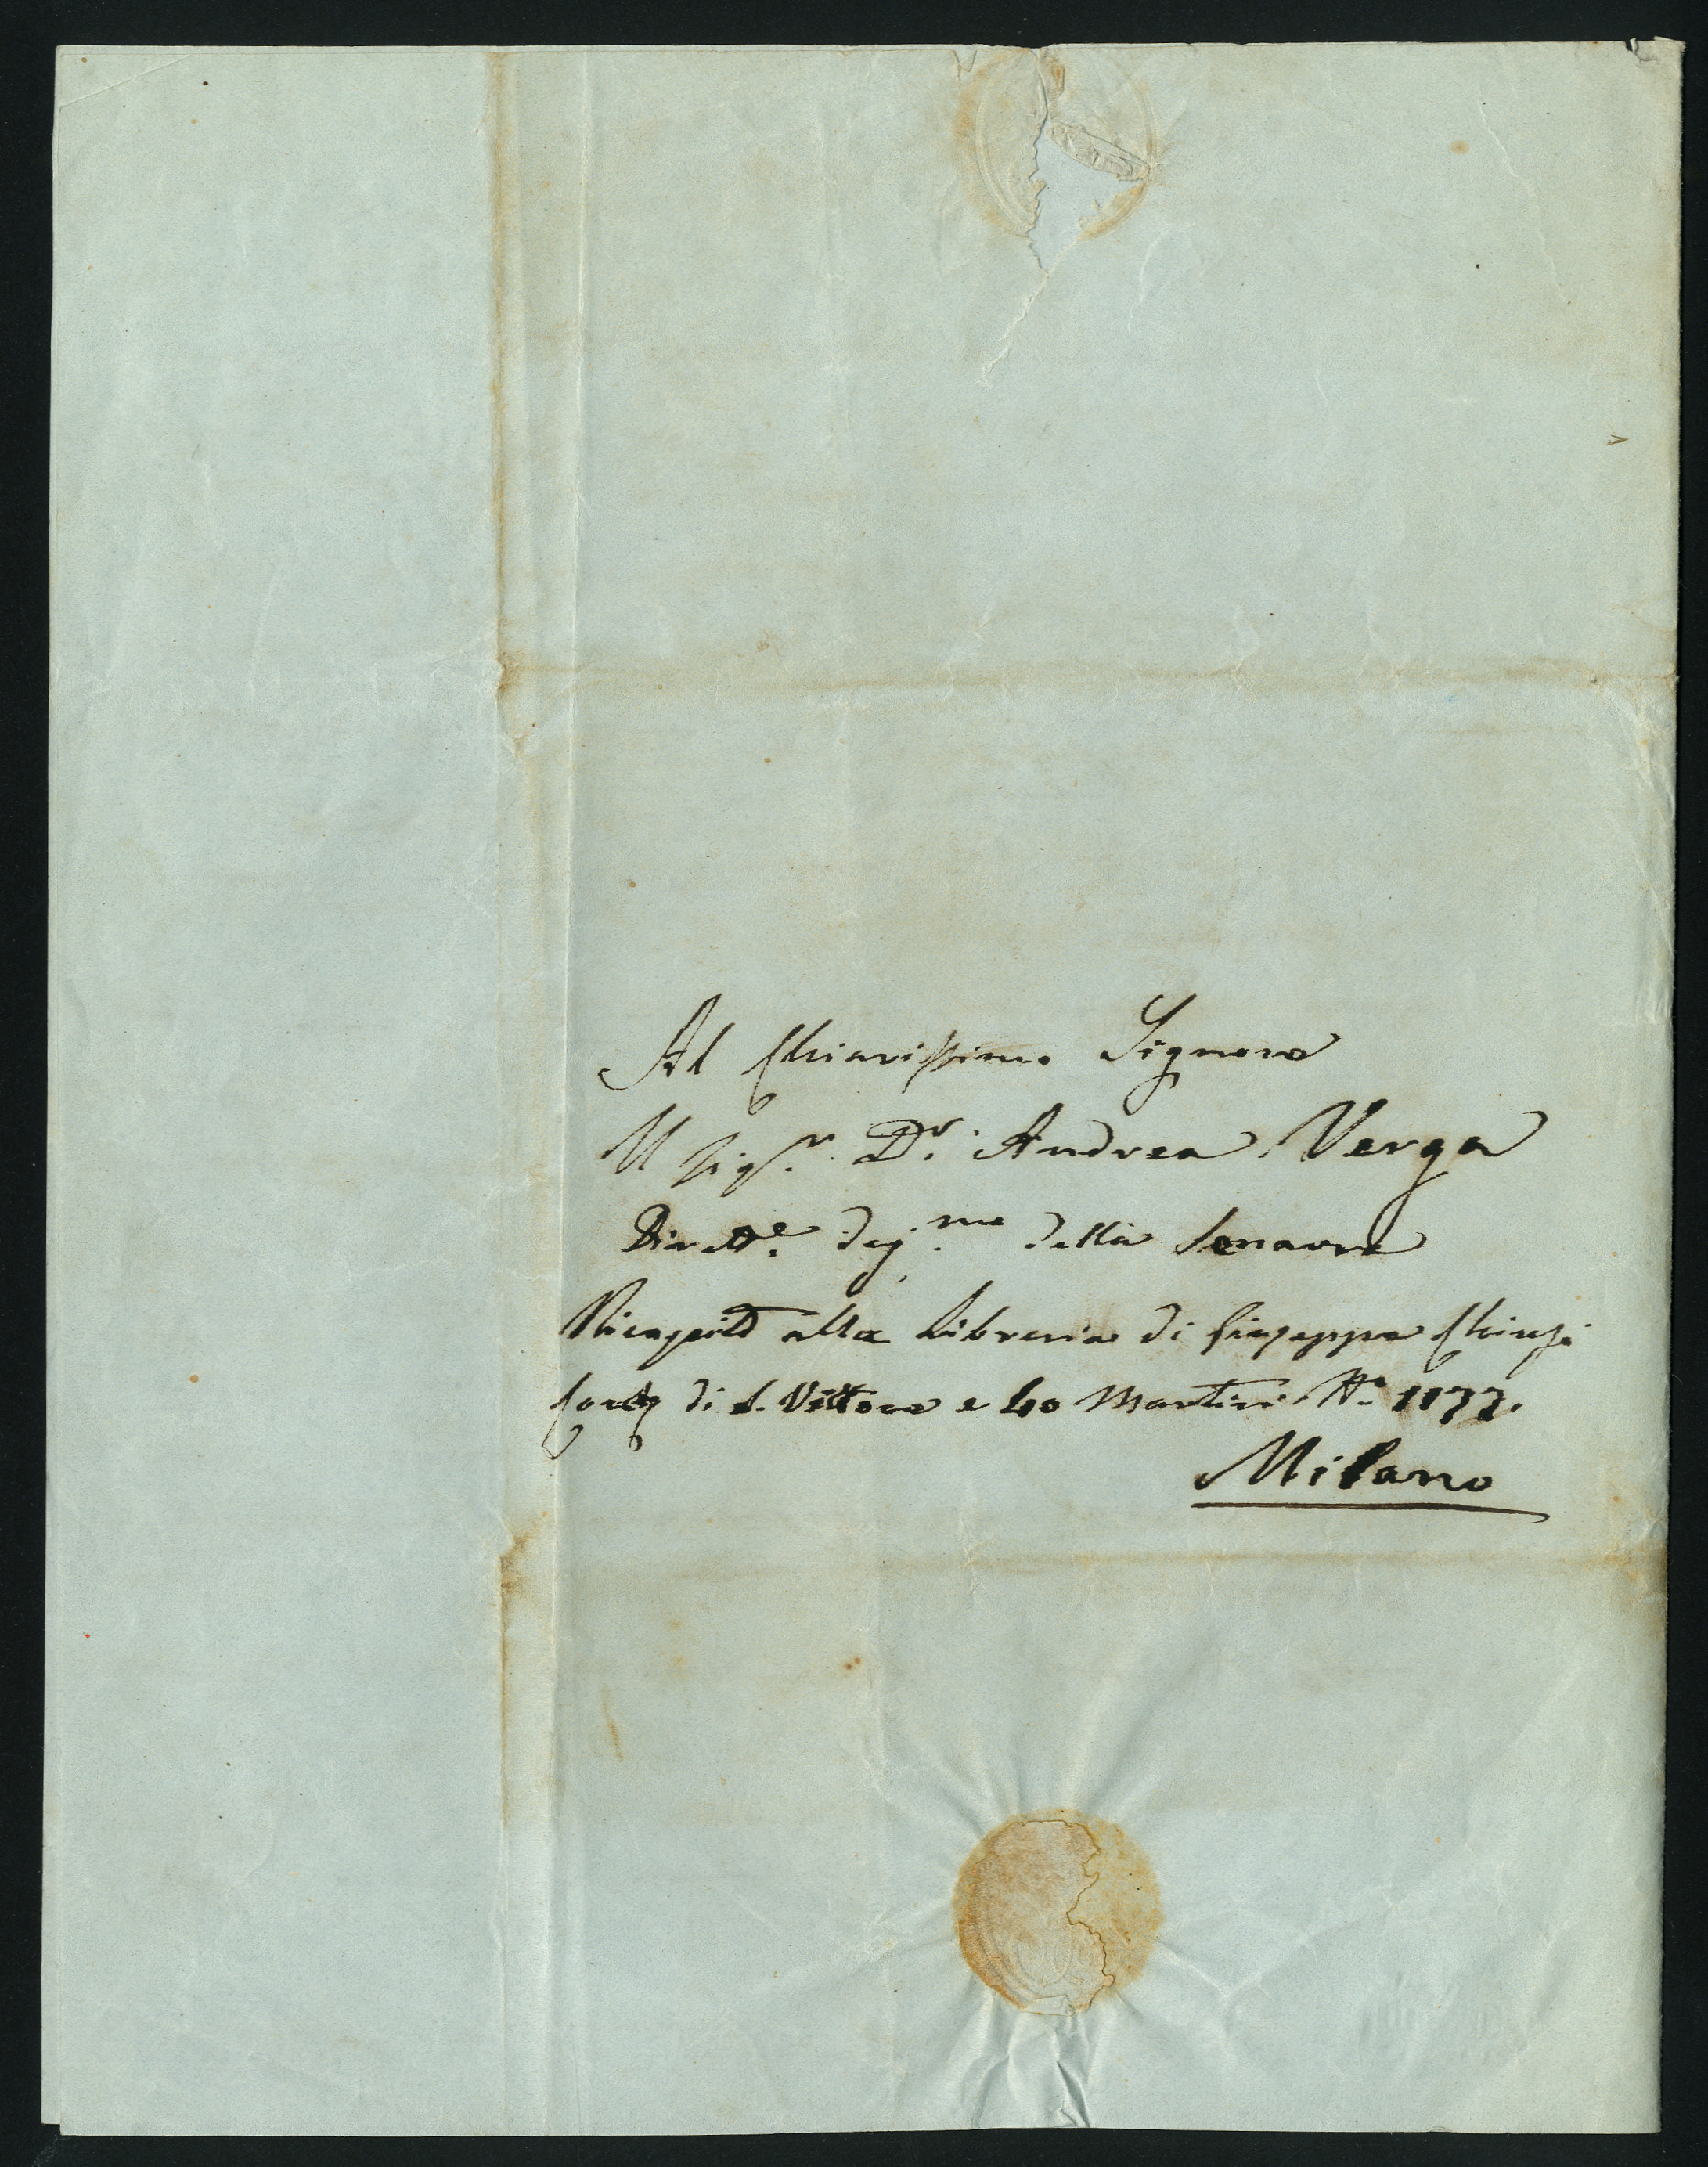 Al Chiarissimo Signore
Il Sig.r D.r Andrea Verga
Dirett.e deg.mo della Senavra
Ricapito alla Libreria di Giuseppe Chiusi
Cors di S. Vittore e 40 Martiri N.o 1177.
Milano